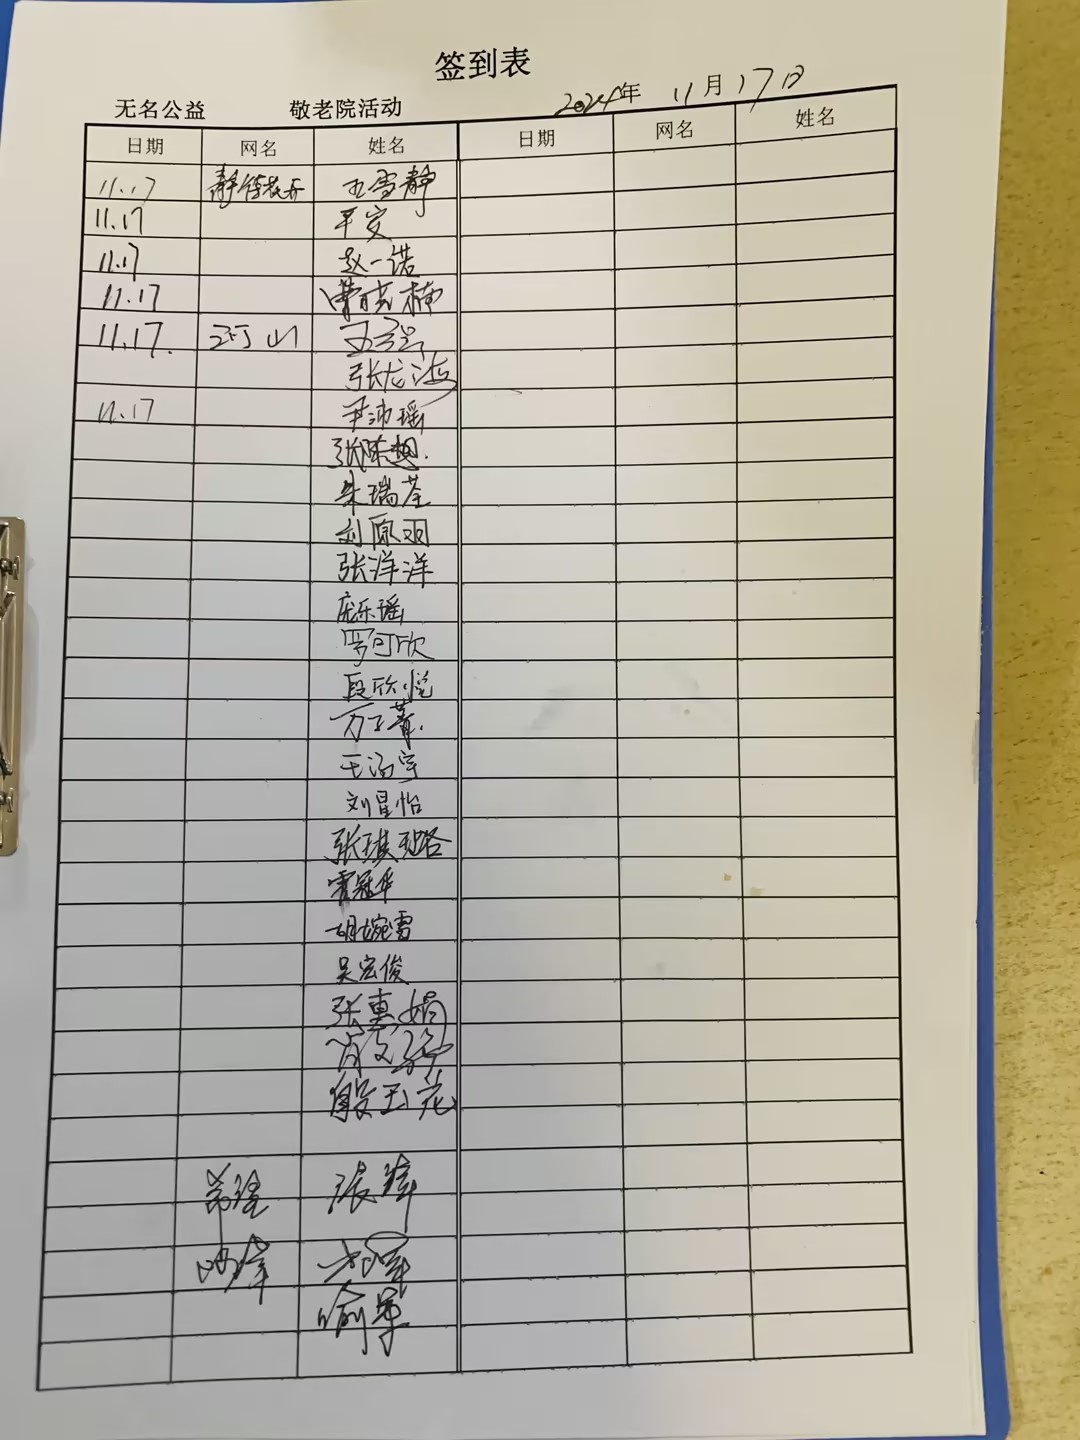 签到表
无名公益 敬老院活动 2024年 11月17日
日期 网名 姓名 日期 网名 姓名
11.17 静待花开 王雪静
11.17 平安
11.17 赵一诺
11.17 曹晓楠
11.17. 河山
张龙海
11.17 尹沛瑶
张陈想.
朱瑞荃
刘原羽
张洋洋
庞乐瑶
罗可欣
段欣悦
万子菁.
王涵宇
刘星怡
张琪珞
霍冠华
胡婉雪
吴宏俊
张惠娟
殷玉花
希望 张辉
喻军